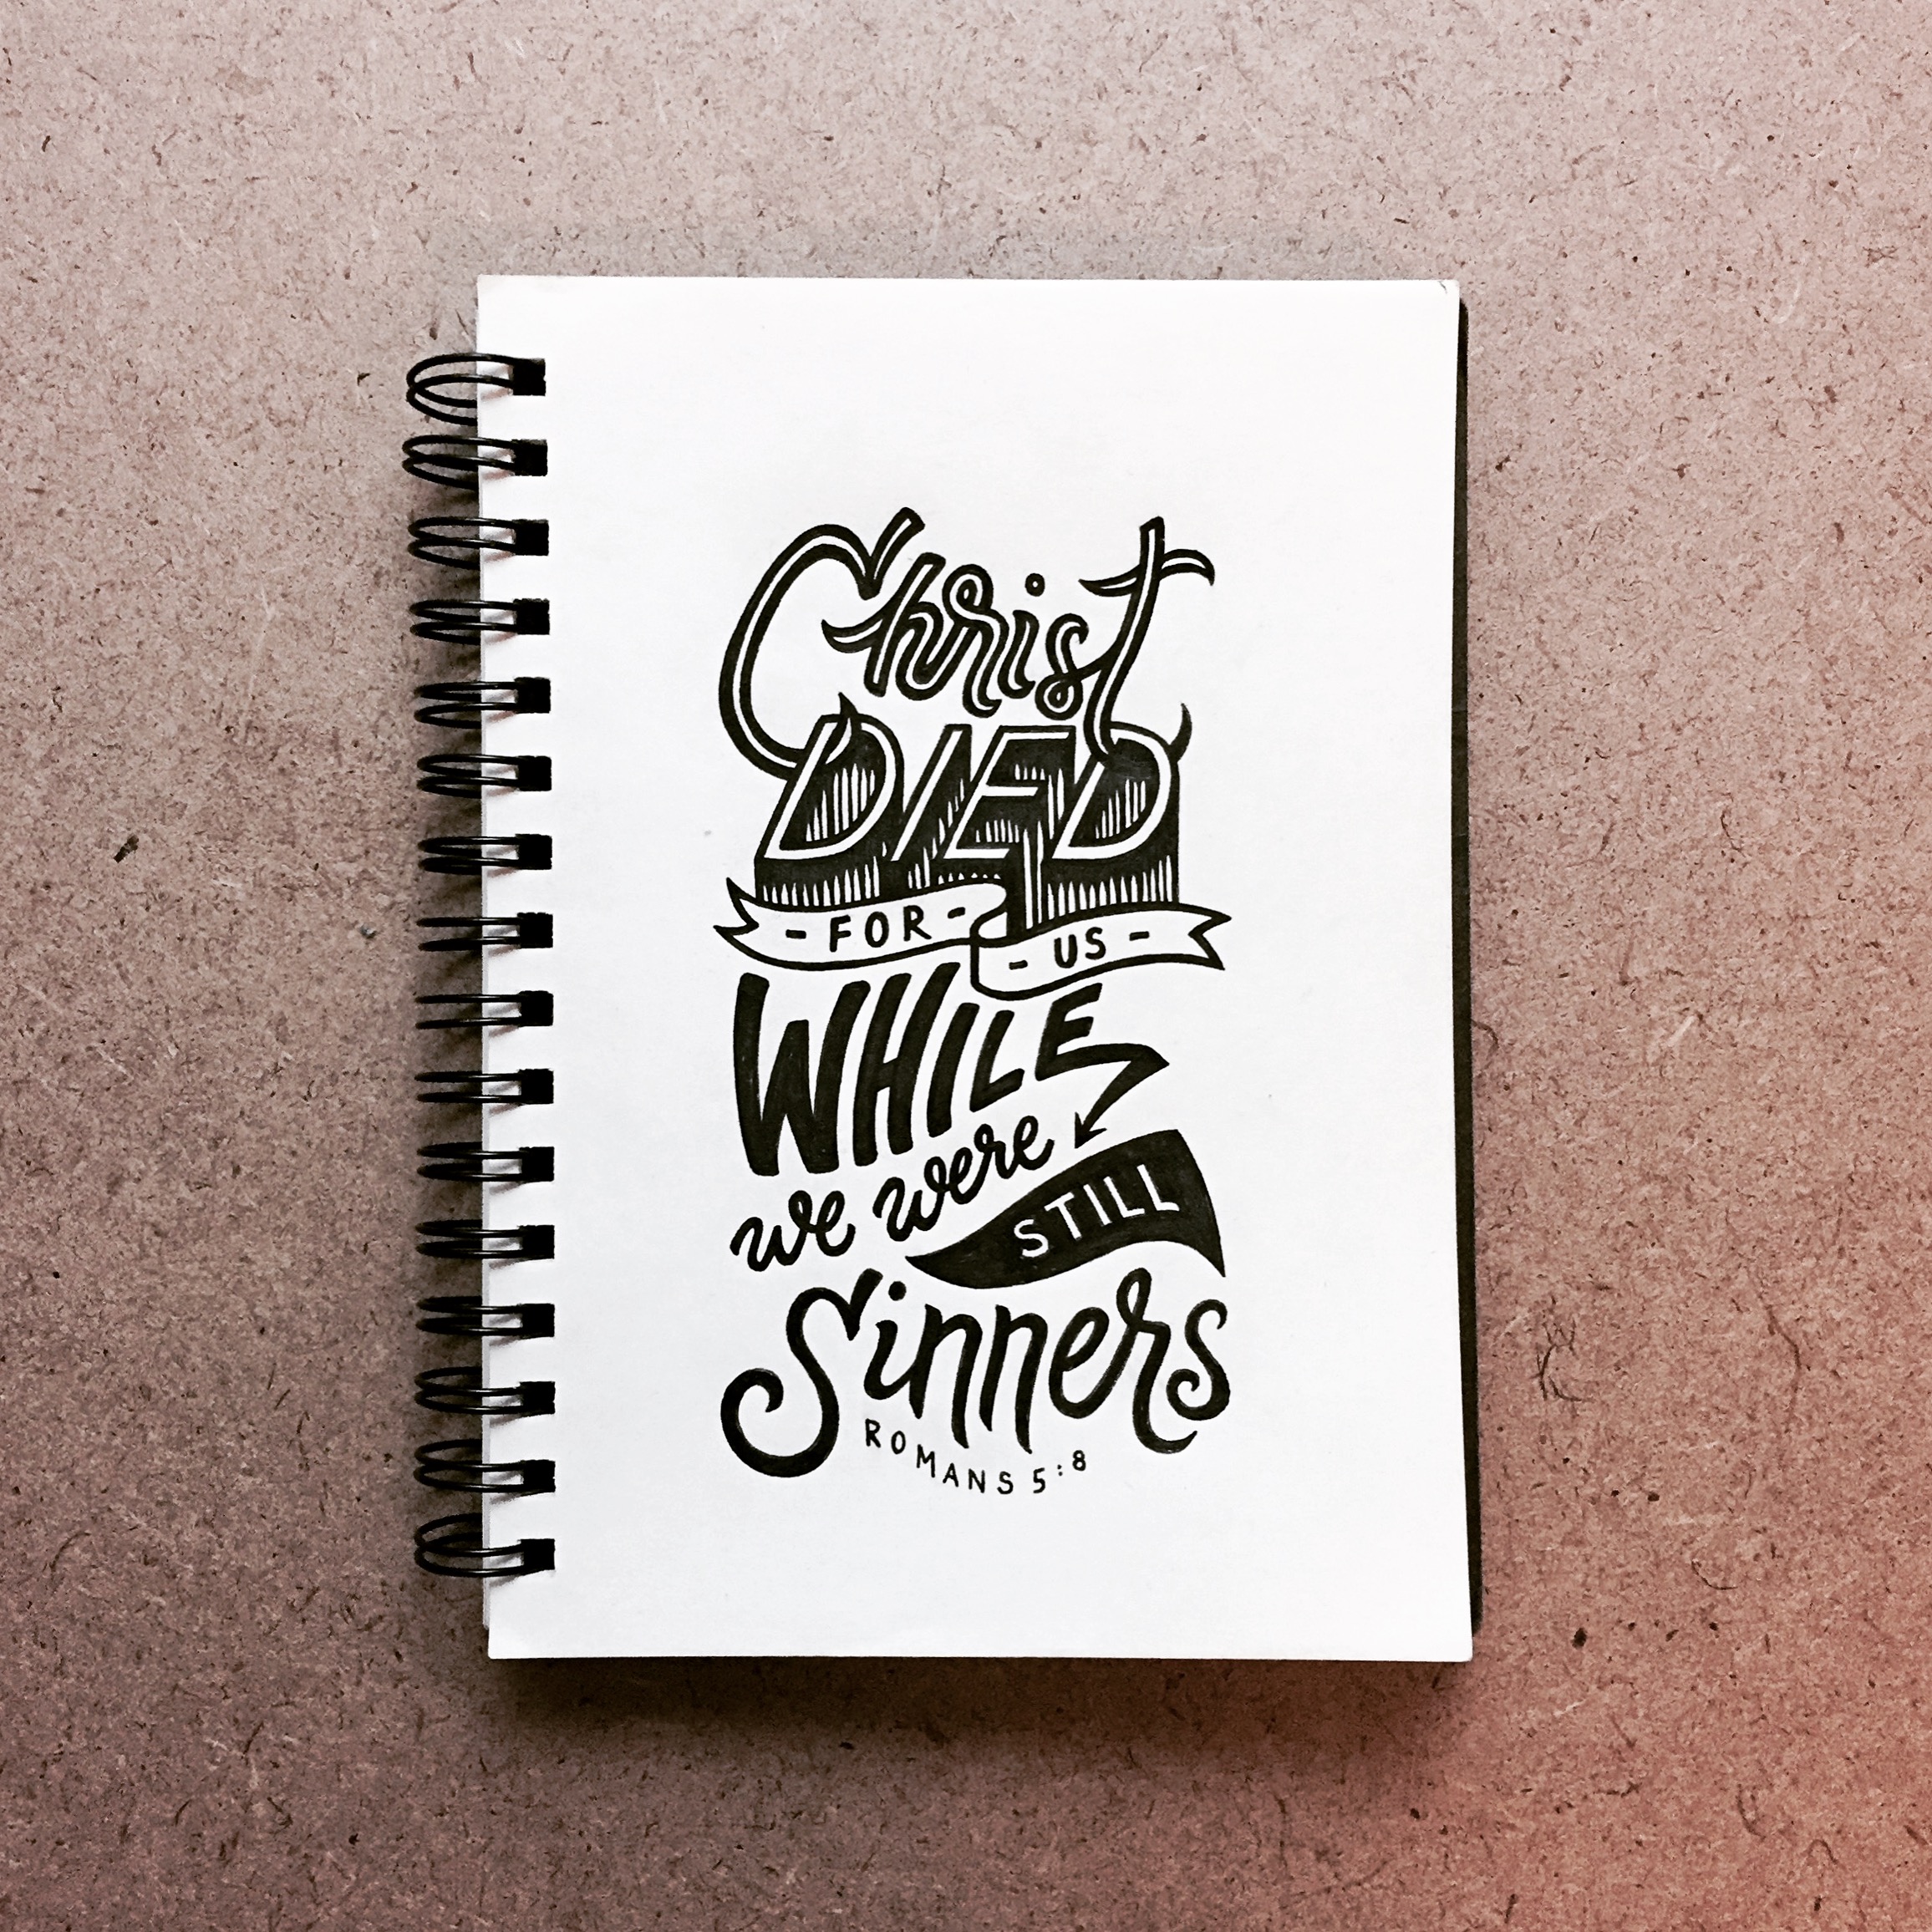 Christ
DIED
- FOR - - US -
WHILE
we were
STILL
Sinners
ROMANS 5:8